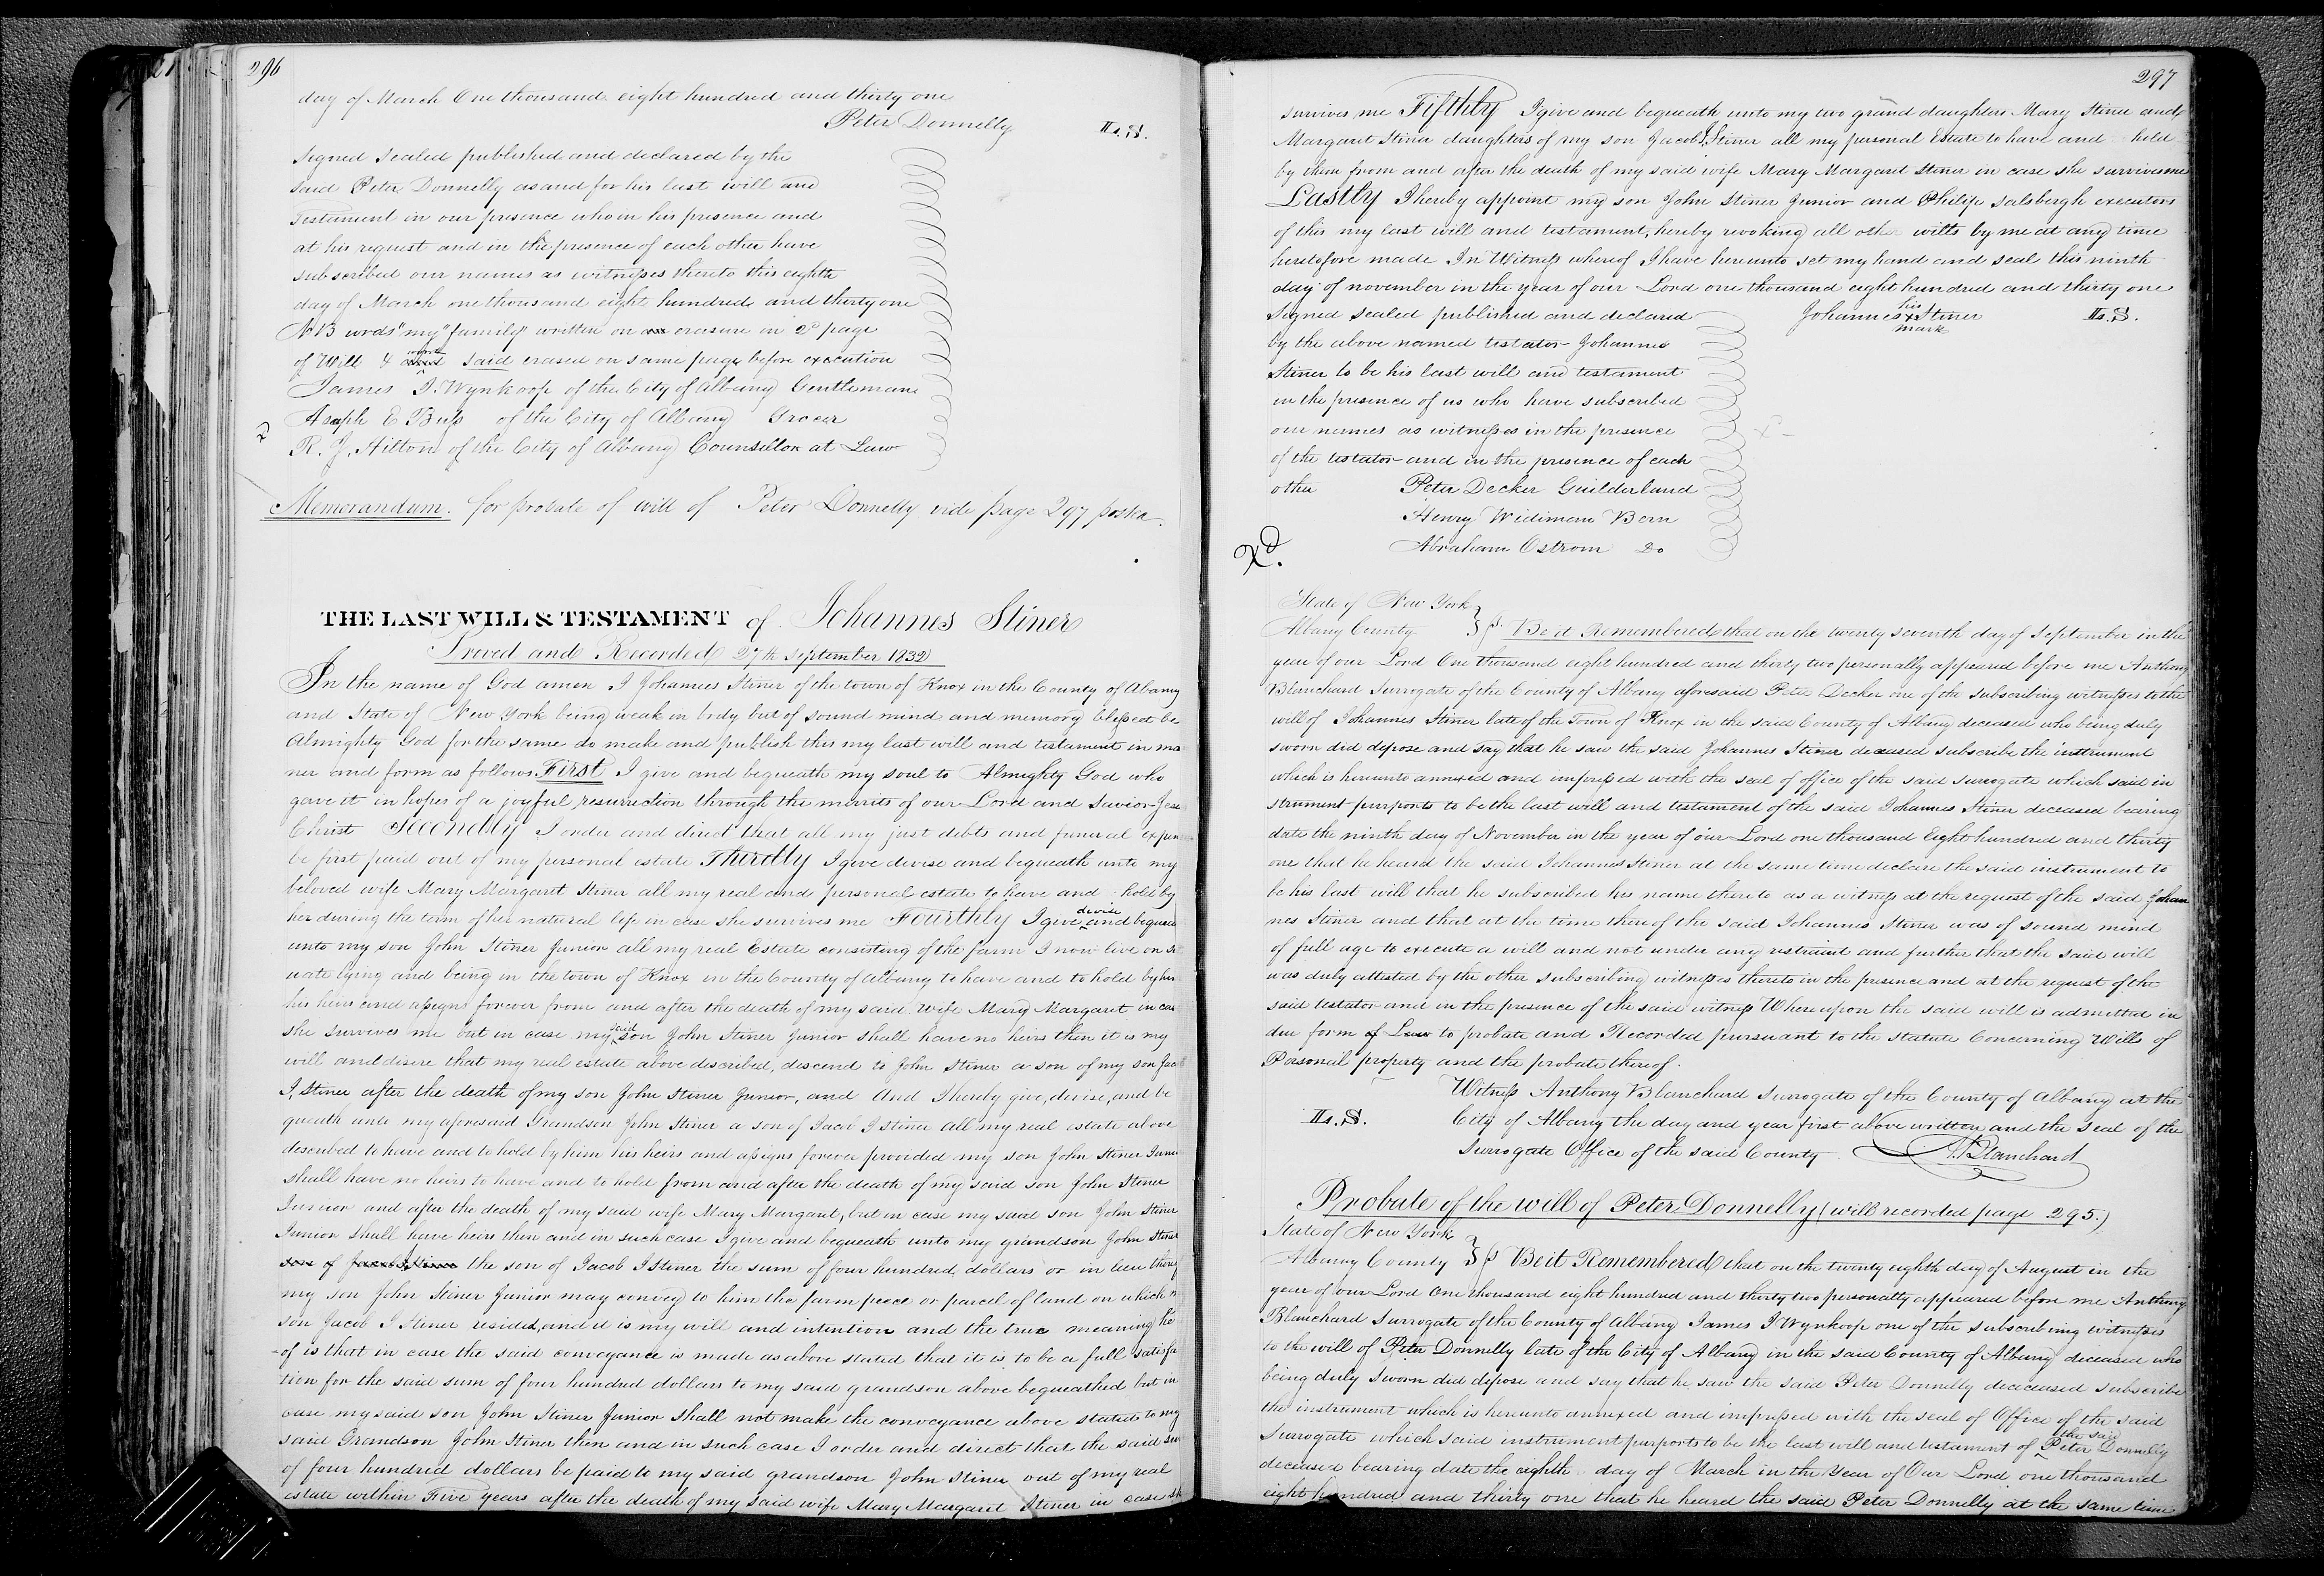 296
day of March One thousand eight hundred and thirty one
Peter Donnelly L.S.
Signed Sealed published and declared by the
Said Peter Donnelly as and for his last will and
Testament in our presence who in his presence and
at his request and in the presence of each other have
subscribed our names as witnesses thereto this eighth
day of March one thousand eight hundred and thirty one
NB words "my" family" written on an erasure in 2d page
of Will & word said erased on same page before execution
James J. Wynkoop of the City of Albany Gentleman
Asaph E Buss of the City of Albany Grocer
R. J. Hilton of the City of Albany Counsellor at Law
Memorandum. for probate of will of Peter Donnelly vide page 297 postea.
THE LAST WILL & TESTAMENT of Johannes Stiner
Proved and Recorded 27th September 1832
In the name of God amen I Johannes Stiner of the town of Knox in the County of Albany
and State of New York being weak in body but of sound mind and memory blessed be
Almighty God for the same do make and publish this my last will and testament in ma
ner and form as follows First I give and bequeath my soul to Almighty God who
gave it in hopes of a joyful resurrection through the merrits of our Lord and Savior Jesu
Christ Secondly I order and direct that all my just debts and funeral expen
be first paid out of my personal estate Thirdly I give devise and bequeath unto my
beloved wife Mary Margaret Stiner all my real and personal estate to have and hold by
her during the term of her natural life in case she survives me Fourthly I give devise and bequea
unto my son John Stiner Junior all my real Estate consisting of the farm I now live on sit
uate lying and being in the town of Knox in the County of Albany to have and to hold by him
his heirs and assigns forever from and after the death of my said wife Mary Margaret in cas
she survives me but in case my said son John Stiner Junior shall have no heirs then it is my
will and desire that my real estate above described, descend to John Stiner a son of my son Jaco
I, Stiner after the death of my son John Stiner Junior, and And I hereby give, devise, and be
queath unto my aforesaid Grandson John Stiner a son of Jacob I Stiner all my real estate above
described to have and to hold by him his heirs and assigns forever provided my son John Stiner Junior
shall have no heirs to have and to hold from and after the death of my said son John Stiner
Junior and after the death of my said wife Mary Margaret, but in case my said son John Stiner
Junior shall have heirs then and in such case I give and bequeath unto my grandson John Stiner
son of Jacob I, Stiner the son of Jacob I Stiner the sum of four hundred dollars or in lieu thereof
my son John Stiner Junior may convey to him the farm peace or parcel of land on which m
son Jacob I Stiner resided, and it is my will and intention and the true meaning he
of is that in case the said conveyance is made as above stated that it is to be a full satisfa
tion for the said sum of four hundred dollars to my said grandson above bequeathed but in
case my said son John Stiner Junior shall not make the conveyance above stated to my
said Grandson John Stiner then and in such case I order and direct that the said su
of four hundred dollars be paid to my said grandson John Stiner out of my real
estate within Five years after the death of my said wife Mary Margaret Stiner in case sh
297
survives me Fifthly I give and bequeath unto my two grand daughters Mary Stiner and
Margaret Stiner daughters of my son Jacob I, Stiner all my personal Estate to have and hold
by them from and after the death of my said wife Mary Margaret Stiner in case she survives me
Lastly I hereby appoint my son John Stiner Junior and Philip Salsbergh executors
of this my last will and testament, hereby revoking all other wills by me at any time
heretofore made In Witness whereof I have hereunto set my hand and seal this ninth
day of november in the year of our Lord one thousand eight hundred and thirty one
Signed Sealed published and declared Johannes his x mark Stiner L.S.
by the above named testator Johannes
Stiner to be his last will and testament
in the presence of us who have subscribed
our names as witnesses in the presence
of the testator and in the presence of each
other Peter Decker Guilderland
Henry Widimem Bern
Abraham Ostrom Do
State of New York
Albany County } ss Be it Remembered that on the twenty seventh day of September in the
year of our Lord One thousand eight hundred and thirty two personally appeared before me Anthony
Blanchard Surrogate of the County of Albany aforesaid Peter Decker one of the subscribing witnesses to the
will of Johannes Stiner late of the Town of Knox in the said County of Albany deceased who being duly
sworn did depose and say that he saw the said Johannes Stiner deceased subscribe the instrument
which is hereunto annexed and impressed with the seal of office of the said Surrogate which said in
strument purports to be the last will and testament of the said Johannes Stiner deceased bearing
date the ninth day of November in the year of our Lord one thousand Eight hundred and thirty
one that he heard the said Johannes Stiner at the same time declare the said instrument to
be his last will that he subscribed his name thereto as a witness at the request of the said Johan
nes Stiner and that at the time thereof the said Johannes Stiner was of sound mind
of full age to execute a will and not under any restraint and further that the said will
was duly attested by the other subscribing witnesses thereto in the presence and at the request of the
said testator and in the presence of the said witness Whereupon the said will is admitted in
due form of Law to probate and Recorded pursuant to the Statute Concerning Wills of
Personal property and the probate thereof.
Witness Anthony Blanchard Surrogate of the County of Albany at the
L.S. City of Albany the day and year first above written and the seal of the
Surrogate Office of the said County. A. Blanchard
Probate of the will of Peter Donnelly (will recorded page 295.)
State of New York
Albany County } ss Be it Remembered that on the twenty eighth day of August in the
year of our Lord One thousand eight hundred and thirty two personally appeared before me Anthony
Blanchard Surrogate of the County of Albany James J Wynkoop one of the subscribing witnesses
to the will of Peter Donnelly late of the City of Albany in the said County of Albany deceased who
being duly sworn did depose and say that he saw the said Peter Donnelly dececeased subscribe
the instrument which is hereunto annexed and impressed with the seal of Office of the said
Surrogate which said instrument purports to be the last will and testament of the said Peter Donnelly
deceased bearing date the eighth day of March in the Year of Our Lord one thousand
eight hundred and thirty one that he heard the said Peter Donnelly at the same time